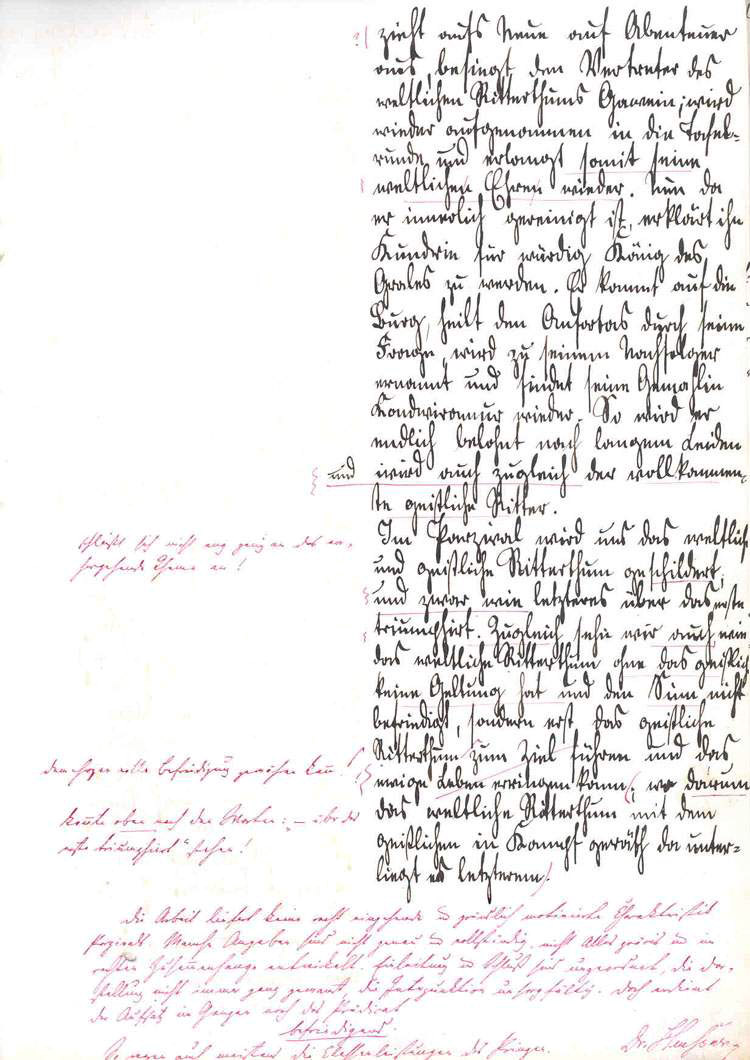 zieht aufs Neue auf Abenteuer
aus, besiegt den Vertreter des
weltlichen Ritterthums Gawein; wird
wieder aufgenommen in die Tafel-
runde und erlangt somit seine
weltlichen Ehren wieder. Nun da
er innerlich gereinigt ist, erklärt ihn
Kundrie für würdig König des
Grales zu werden. Er kommt auf die
Burg, heilt den Anfortas durch seine
Frage, wird zu seinem Nachfolger
ernannt und findet seine Gemahlin
Kondwiramur wieder. So wird er
endlich belohnt nach langem Leiden
und wird auch zugleich der vollkommen-
ste geistliche Ritter.
Im Parzival wird uns das weltliche
und geistliche Ritterthum geschildert,
und zwar wie letzteres über das erste
triumphirt. Zugleich sehn wir auch, wie
das weltliche Ritterthum ohne das geistliche
keine Geltung hat und den Sinn nicht
befriedigt, sondern erst das geistliche
Ritterthum zum Ziel führen und das
ewige Leben erringen kann; wo darum
das weltliche Ritterthum mit dem
geistlichen in Kampf geräth da unter-
liegt es letzterem.
schließt sich nicht eng genug an das
Thema an!
volle Befriedigung gewähren kann!
könnte oben nach den Worten: „— über das
erste triumphirt" stehen!
Die Arbeit liefert keine recht eingehende u gründlich motivierte Charakteristik
Parzivals. Manche Angaben sind nicht genau u vollständig, nicht Alles u im
rechten Zusammenhange entwickelt. Einleitung u Schluß sind ungeordnet, die Dar-
stellung nicht immer ganz gewandt, die Interpunktion unsorgfältig. Doch verdient
der Aufsatz im Ganzen noch das Prädicat
befriedigend.
So waren auch meistens die Classenleistungen des
Dr.